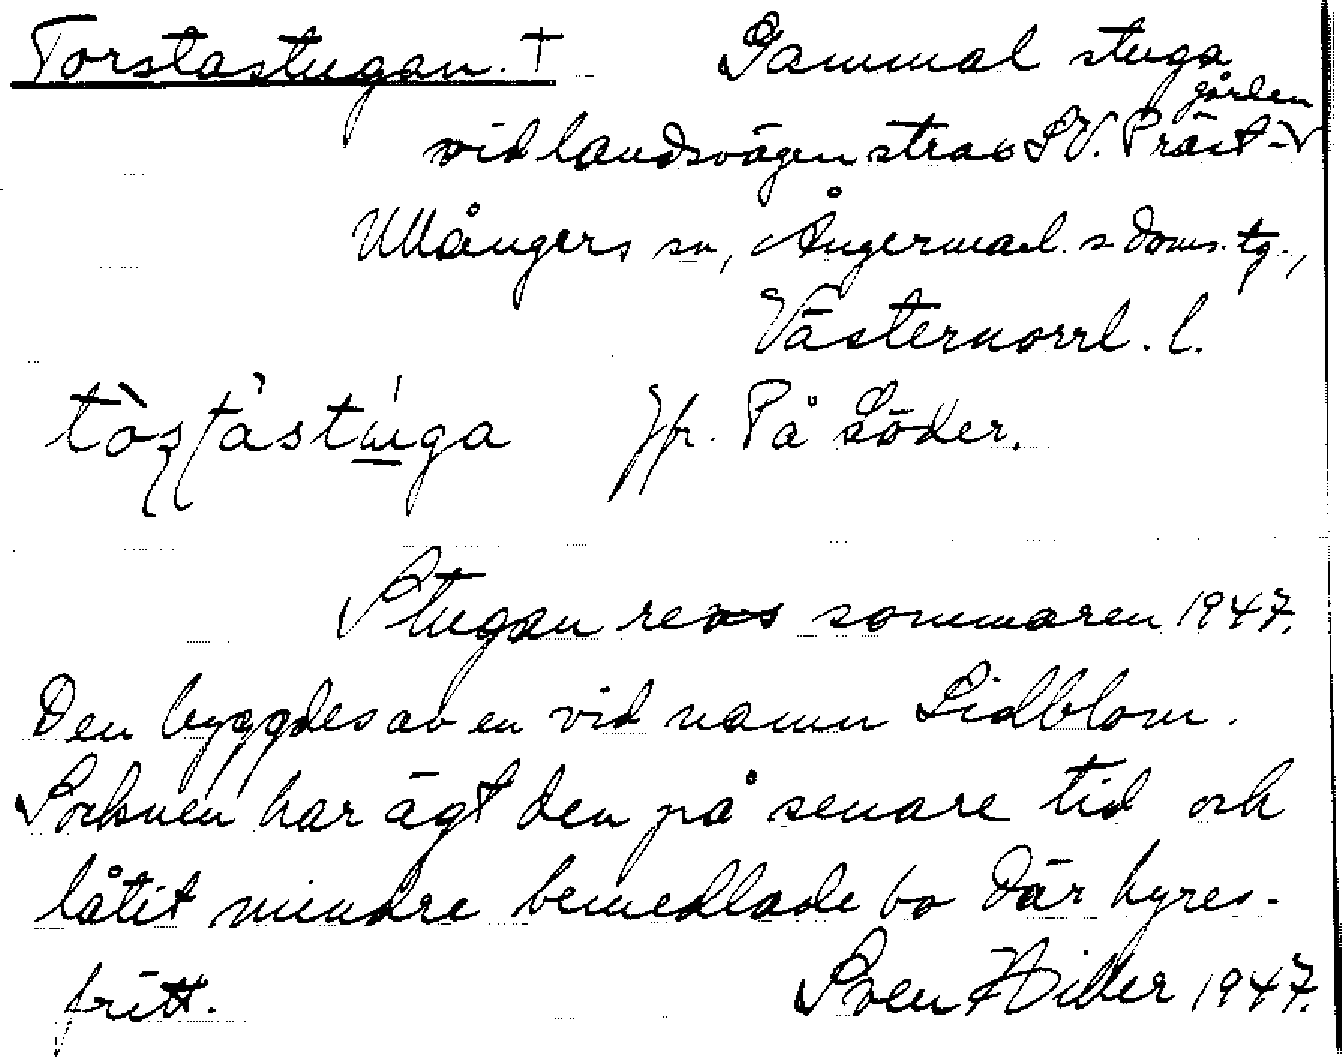 Torstastugan. † Gammal stuga
vid landsvägen strax SV. Präst-
gården
Ullångers sn, Ångermanl. s. doms. tg.,
Västernorrl. l.
Jfr. På Söder.
Stugan revs sommaren 1947.
Den byggdes av en vid namn Lidblom.
Socknen har ägt den på senare tid och
låtit mindre bemedlade bo där hyres-
fritt. Sven Hiller 1947.